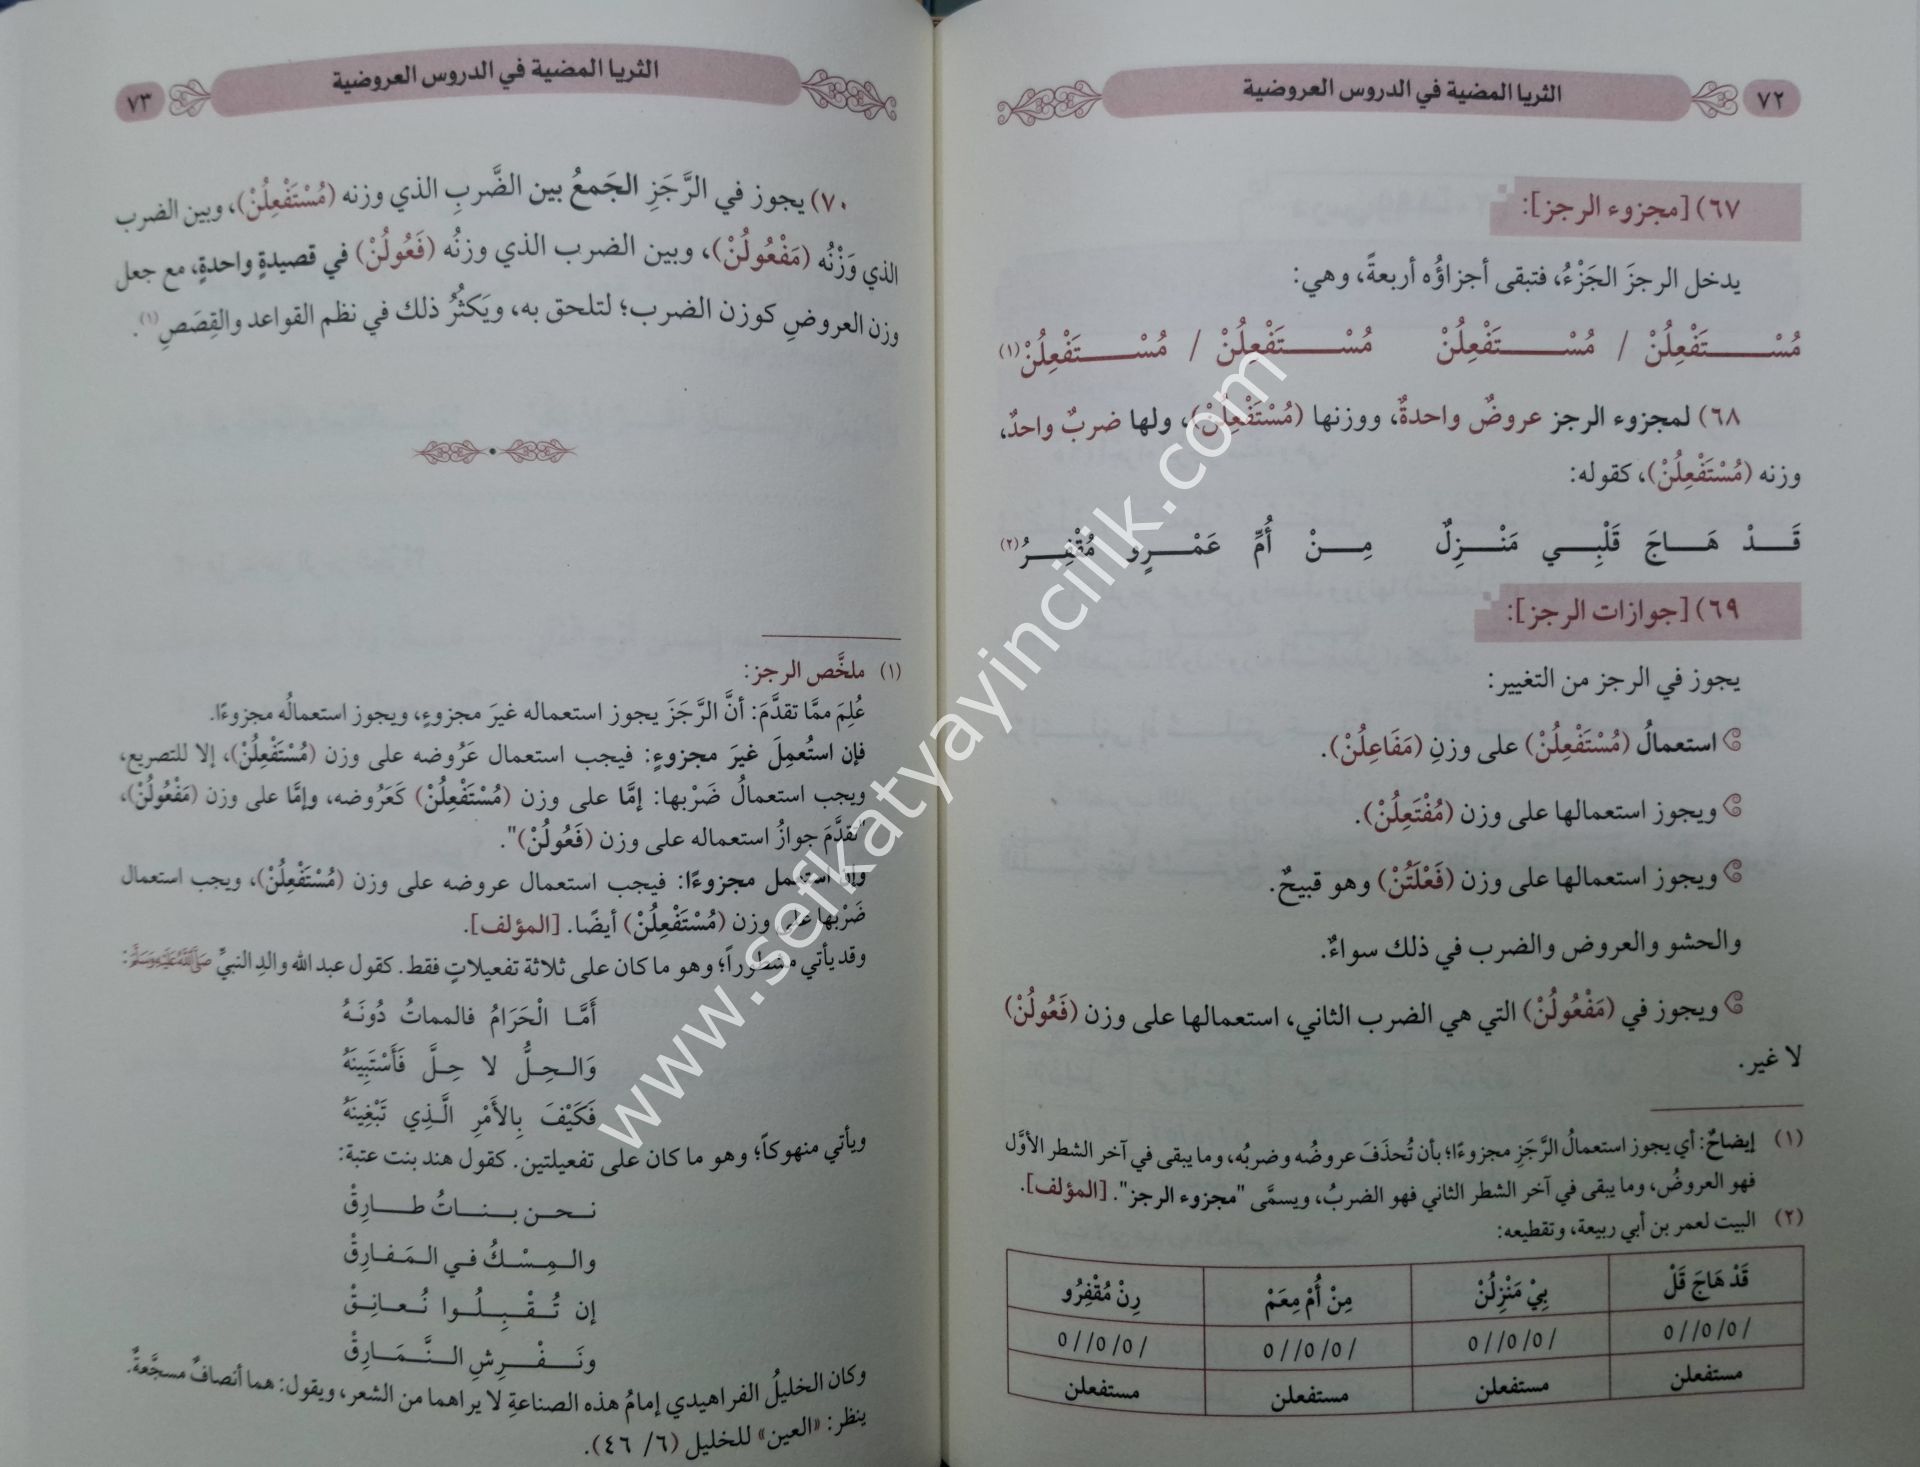 ٧٢ الثريا المضية في الدروس العروضية
٦٧) [مجزوء الرجز]:
يدخل الرجزَ الجَزْءُ، فتبقى أجزاؤُه أربعةً، وهي:
مُسْتَفْعِلُنْ / مُسْتَفْعِلُنْ مُسْتَفْعِلُنْ / مُسْتَفْعِلُنْ(١)
٦٨) لمجزوء الرجز عروضٌ واحدةٌ، ووزنها (مُسْتَفْعِلُنْ)، ولها ضربٌ واحدٌ،
وزنه (مُسْتَفْعِلُنْ)، كقوله:
قَدْ هَاجَ قَلْبِي مَنْزِلٌ مِنْ أُمِّ عَمْرٍو مُقْفِرُ(٢)
٦٩) [جوازات الرجز]:
يجوز في الرجز من التغيير:
استعمالُ (مُسْتَفْعِلُنْ) على وزنِ (مَفَاعِلُنْ).
ويجوز استعمالها على وزن (مُفْتَعِلُنْ).
ويجوز استعمالها على وزن (فَعْلَتُنْ) وهو قبيحٌ.
والحشو والعروض والضرب في ذلك سواءٌ.
ويجوز في (مَفْعُولُنْ) التي هي الضرب الثاني، استعمالها على وزن (فَعُولُنْ)
لا غير.
(١) إيضاحٌ: أي يجوز استعمالُ الرَّجَزِ مجزوءًا؛ بأن تُحذَفَ عروضُه وضربُه، وما يبقى في آخر الشطر الأوَّل
فهو العروضُ، وما يبقى في آخر الشطر الثاني فهو الضربُ، ويسمَّى "مجزوء الرجز". [المؤلف].
(٢) البيت لعمر بن أبي ربيعة، وتقطيعه:
قَدْ هَاجَ قَلْ بِيْ مَنْزِلُنْ مِنْ أُمْ مِعَمْ رِنْ مُقْفِرُو
/٥/٥//٥ /٥/٥//٥ /٥/٥//٥ /٥/٥//٥
مستفعلن مستفعلن مستفعلن مستفعلن
الثريا المضية في الدروس العروضية ٧٣
٧٠) يجوز في الرَّجَزِ الجَمعُ بين الضَّربِ الذي وزنه (مُسْتَفْعِلُنْ)، وبين الضرب
الذي وَزْنُه (مَفْعُولُنْ)، وبين الضرب الذي وزنُه (فَعُولُنْ) في قصيدةٍ واحدةٍ، مع جعل
وزن العروضِ كوزن الضرب؛ لتلحق به، ويَكثُرُ ذلك في نظم القواعد والقِصَصِ(١).
(١) ملخَّص الرجز:
عُلِمَ ممَّا تقدَّمَ: أنَّ الرَّجَزَ يجوز استعماله غيرَ مجزوءٍ، ويجوز استعمالُه مجزوءًا.
فإن استُعمِلَ غيرَ مجزوءٍ: فيجب استعمال عَرُوضه على وزن (مُسْتَفْعِلُنْ)، إلا للتصريع،
ويجب استعمالُ ضَرْبها: إمَّا على وزن (مُسْتَفْعِلُنْ) كَعَرُوضه، وإمَّا على وزن (مَفْعُولُنْ)،
"تقدَّمَ جوازُ استعماله على وزن (فَعُولُنْ)".
وإن استُعمل مجزوءًا: فيجب استعمال عروضه على وزن (مُسْتَفْعِلُنْ)، ويجب استعمال
ضَرْبها على وزن (مُسْتَفْعِلُنْ) أيضًا. [المؤلف].
وقد يأتي مشطوراً؛ وهو ما كان على ثلاثة تفعيلاتٍ فقط. كقول عبد الله والدِ النبيِّ ﷺ:
أَمَّا الْحَرَامُ فالمماتُ دُونَهُ
وَالحِلُّ لا حِلَّ فَأَسْتَبِينَهُ
فَكَيْفَ بِالأَمْرِ الَّذِي تَبْغِينَهُ
ويأتي منهوكاً؛ وهو ما كان على تفعيلتين. كقول هند بنت عتبة:
نحن بناتُ طارِقْ
والمِسْكُ في المَفارِقْ
إن تُقْبِلُوا نُعانِقْ
ونَفْرِشِ النَّمَارِقْ
وكان الخليلُ الفراهيدي إمامُ هذه الصناعةِ لا يراهما من الشعر، ويقول: هما أنصافٌ مسجَّعةٌ.
ينظر: «العين» للخليل (٦/ ٤٦).
www.sefkatyayincilik.com